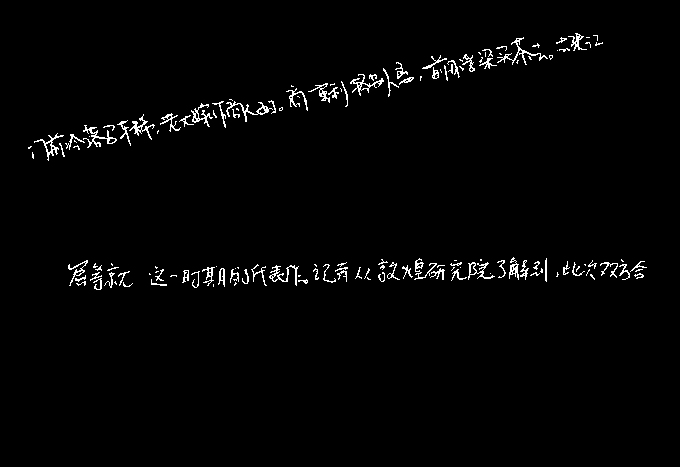 门前冷落车马稀，老大嫁作商人妇。商人重利轻别离，前月浮梁买茶去。去来江
窟等就 这一时期的代表作。记者从敦煌研究院了解到，此次双方合